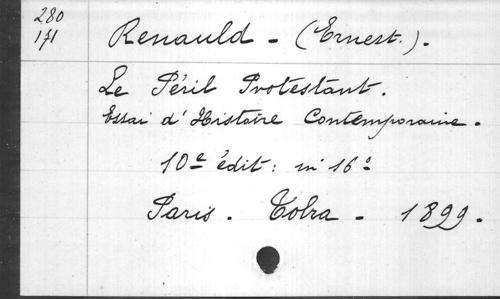 280
171
Renauld - (Ernest.).
Le Péril Protestant.
Essai d'Histoire Contemporaine.
10e édit: in 16°
Paris. Tolra - 1899.